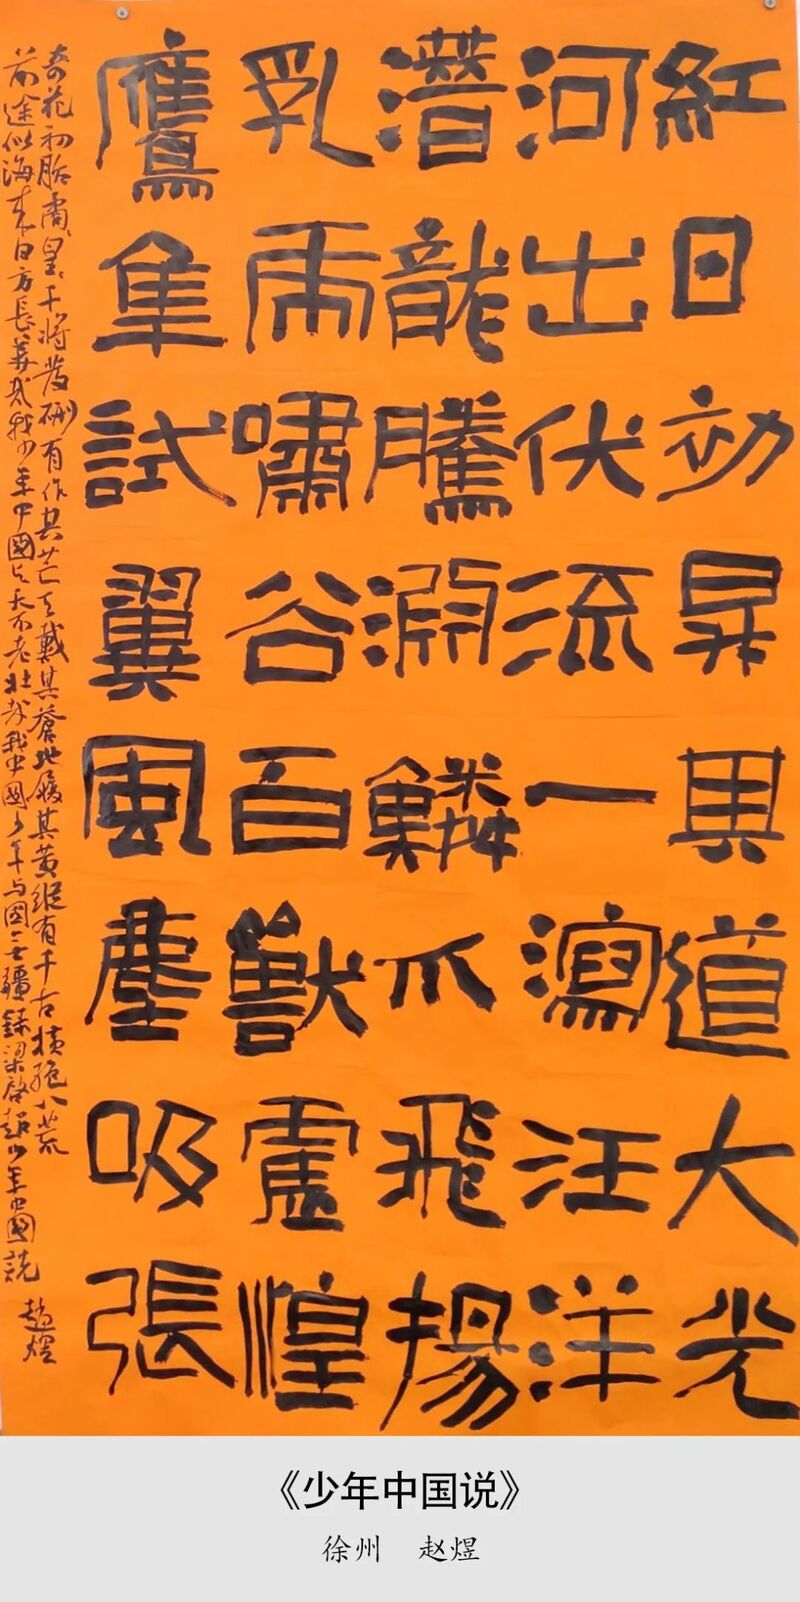 紅日初昇其道大光
河出伏流一瀉汪洋
潛龍騰淵鱗爪飛揚
乳虎嘯谷百獸震惶
鷹隼試翼風塵吸張
奇花初胎矞、皇、干將發硎有作其芒天戴其蒼地履其黃縱有千古橫有八荒
前途似海來日方長美哉我少年中國与天不老壯哉我中國少年与國无疆錄梁啓超少年中國說
趙煜
《少年中国说》
徐州 赵煜